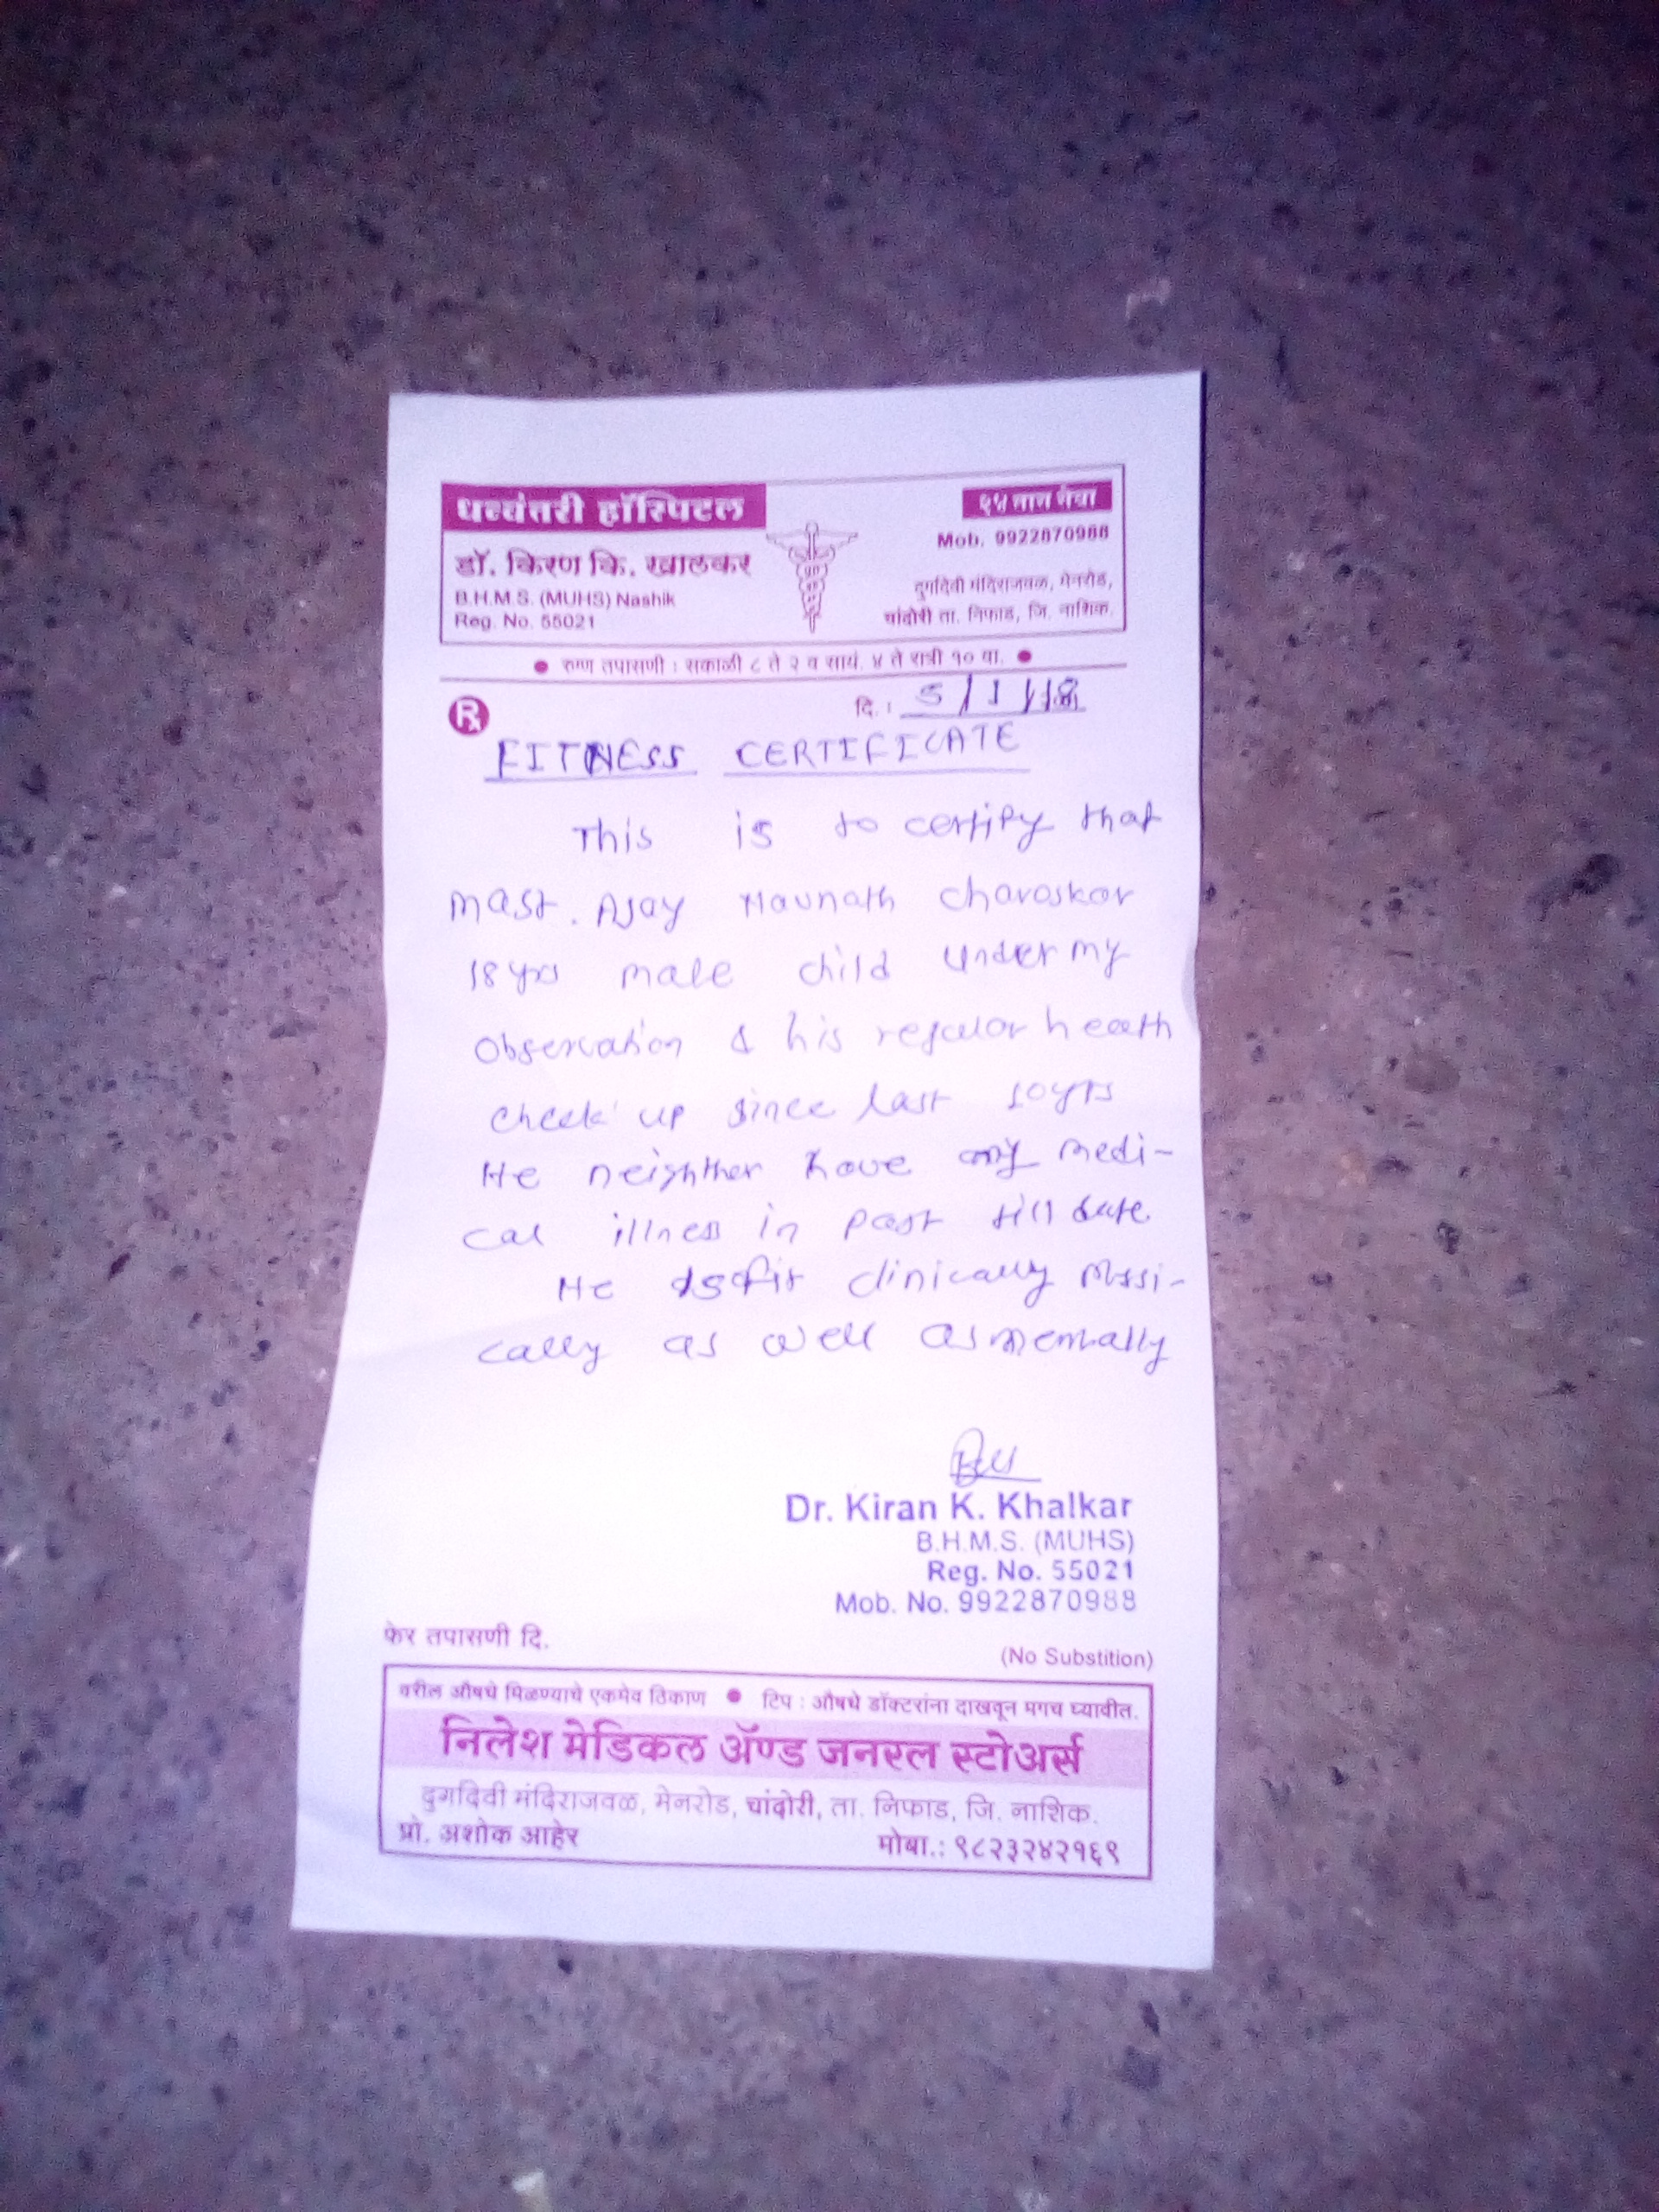 धन्वंतरी हॉस्पिटल
डॉ. किरण कि. खालकर
B.H.M.S. (MUHS) Nashik
Reg. No. 55021
२४ तास सेवा
Mob. 9922870988
दुर्गादेवी मंदिराजवळ, मेनरोड,
चांदोरी ता. निफाड, जि. नाशिक.
रुग्ण तपासणी : सकाळी ८ ते २ व सायं. ४ ते रात्री १० वा.
दि. : 5/1/18
FITNESS CERTIFICATE
This is to certify that
Mast. Ajay Navnath Charoskar
18 yrs male child under my
Observation & his regular heath
check up since last 10yrs
He neighther have any medi-
cal illness in past till date
He is fit clinically
cally as well as mentally
Dr. Kiran K. Khalkar
B.H.M.S. (MUHS)
Reg. No. 55021
Mob. No. 9922870988
फेर तपासणी दि.
(No Substition)
वरील औषधे मिळण्याचे एकमेव ठिकाण • टिप : औषधे डॉक्टरांना दाखवून मगच घ्यावीत.
निलेश मेडिकल ॲण्ड जनरल स्टोअर्स
दुर्गादेवी मंदिराजवळ, मेनरोड, चांदोरी, ता. निफाड, जि. नाशिक.
प्रो. अशोक आहेर
मोबा.: ९८२३२४२१६९